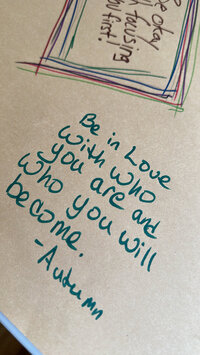 e okay
focusing
first!
Be in Love
with who
you are and
who you will
become.
-Autumn